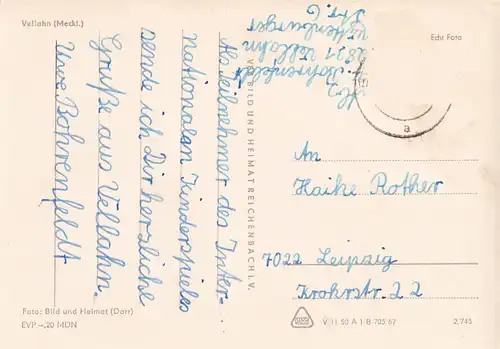 Vellahn (Meckl.)
Als Teilnehmer des Inter-
nationalen Kinderspieles
sende ich Dir herzliche
Grüße aus Vellahn.
Uwe Bohrenfeldt
Foto: Bild und Heimat (Darr)
EVP –,20 MDN
VEB BILD UND HEIMAT REICHENBACH I. V.
U. Bohrenfeldt
2831 Vellahn
Wittenburger
Str. 6
Echt Foto
a
An
Haike Rother
7022 Leipzig
Krohrstr. 22
V 11 50 A 1 B 705/67
2.745